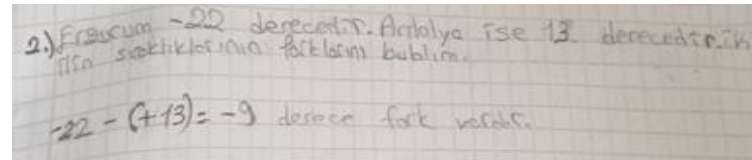 2.) Erzurum -22 derecedir. Antalya ise 13 derecedir. İki
ilin sıcaklıklarının farklarını bulalım.
-22 - (+13) = -9 derece fark vardır.